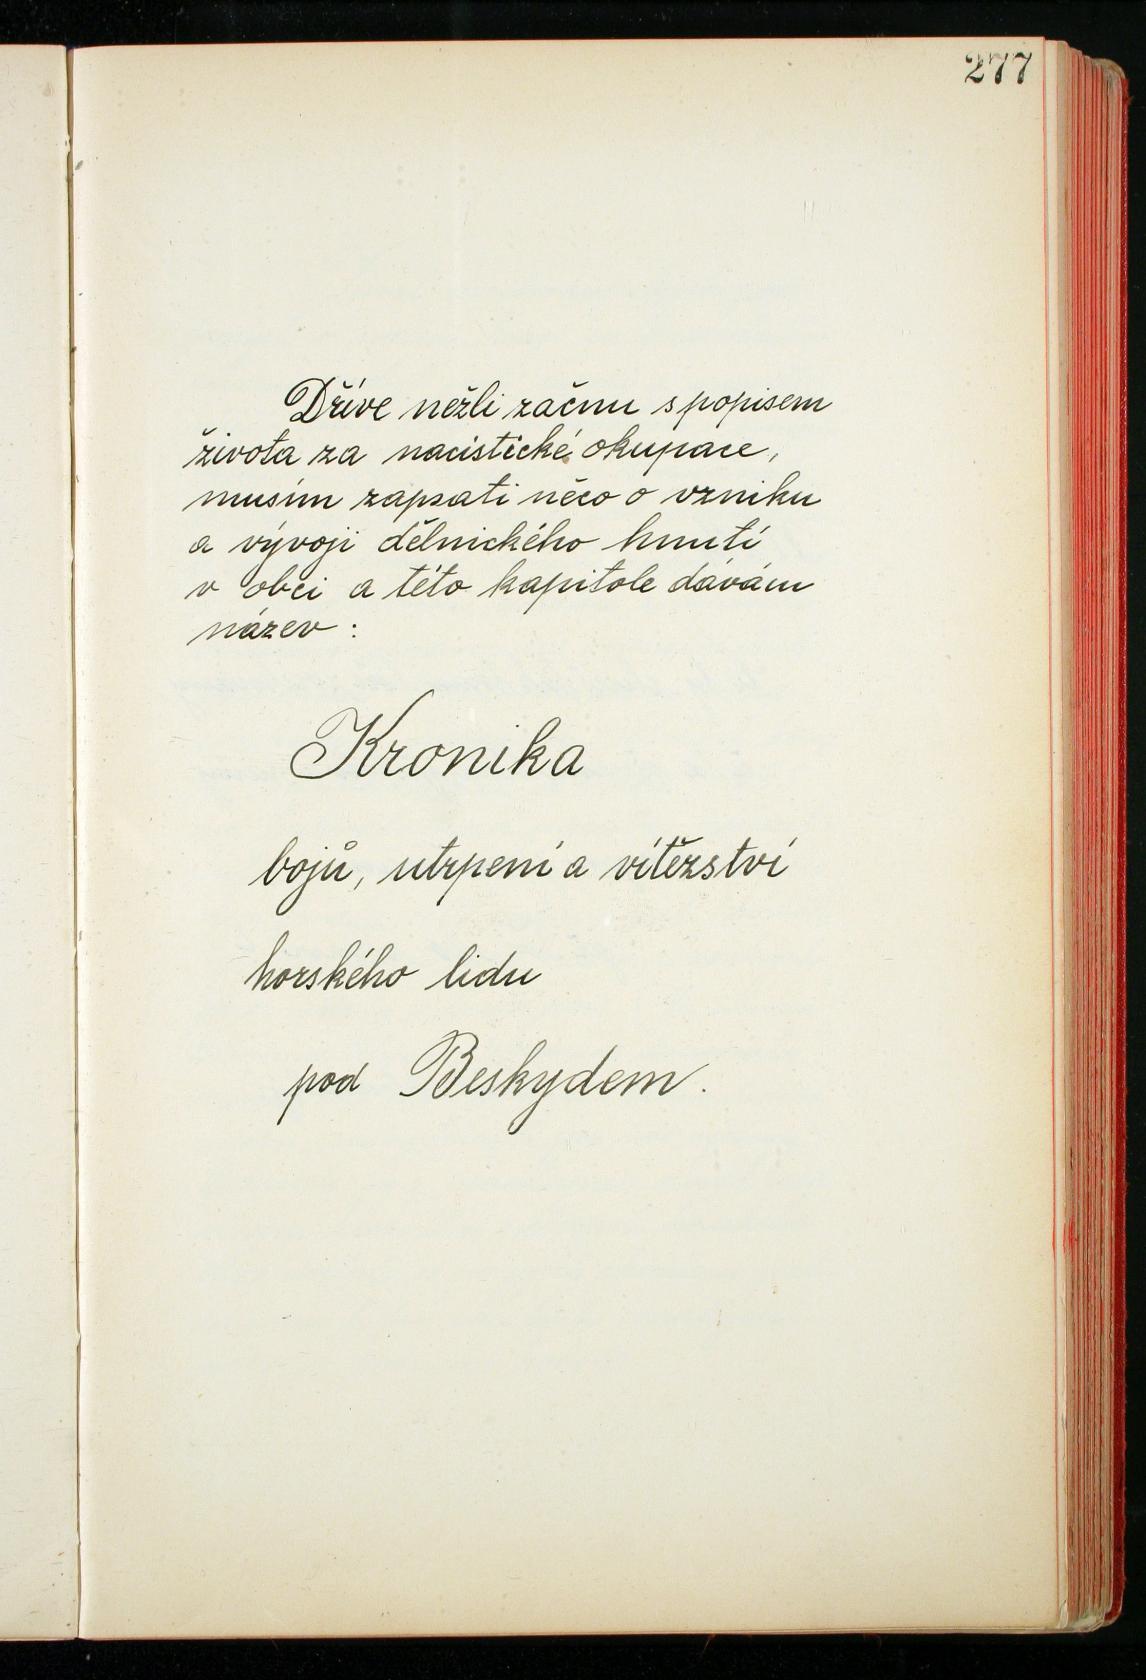 277
Dříve nežli začnu s popisem
života za nacistické okupace,
musím zapsati něco o vzniku
a vývoji dělnického hnutí
v obci a této kapitole dávám
název :
Kronika
bojů, utrpení a vítězství
horského lidu
pod Beskydem.